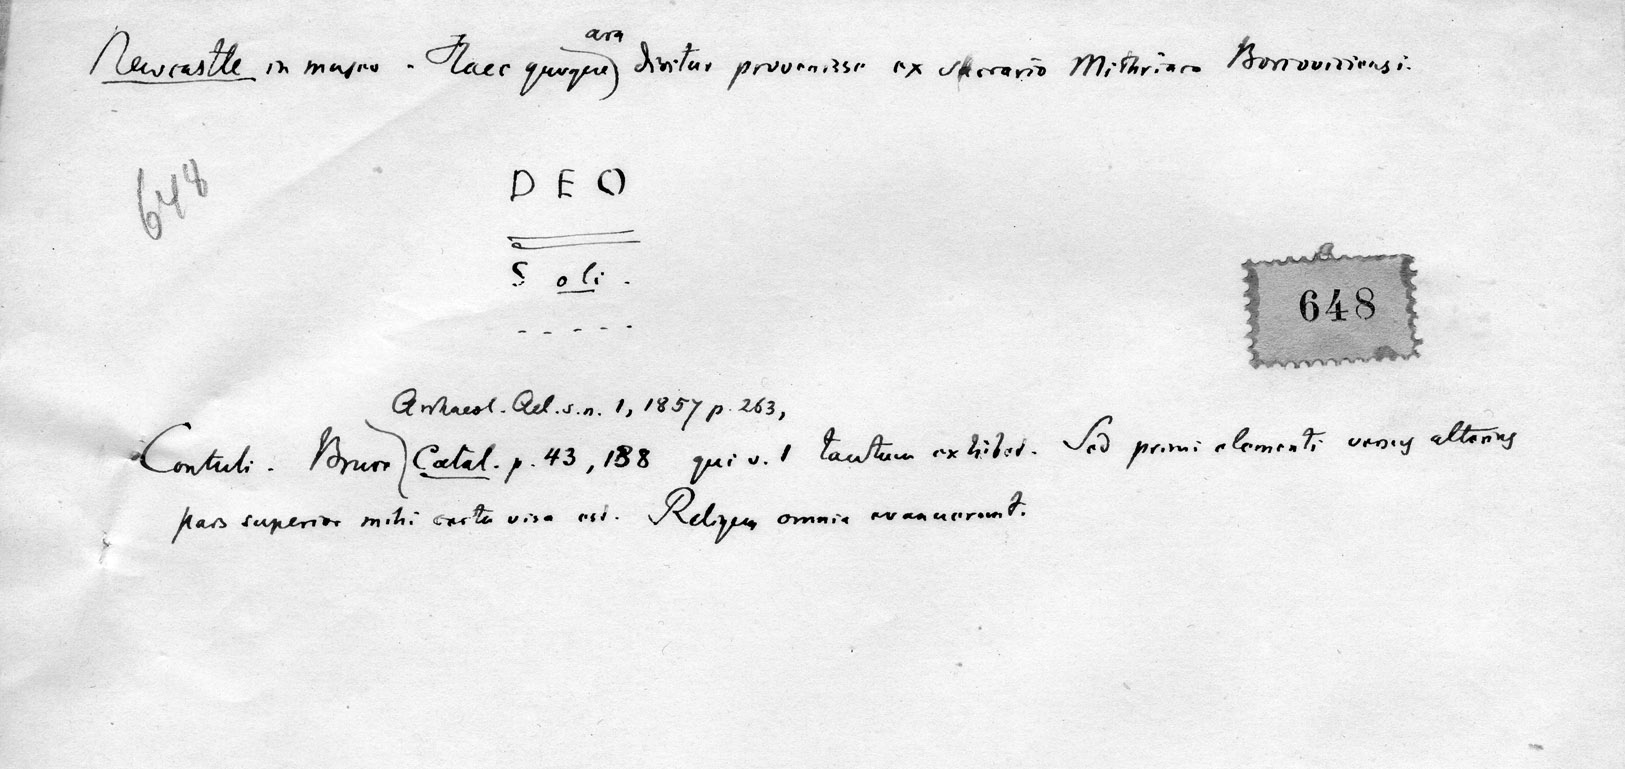 Newcastle in museo. Haec quoque ara dicitur provenisse ex sacrario Mithriaco Borcoviciensi.
648
DEO
Soli.
- - - - -
648
Archaeol. Ael. s.n. 1, 1857 p. 263,
Contuli. Bruce Catal. p. 43, 138 qui v. 1 tantum exhibet. Sed primi elementi versus alterius
pars superior mihi certe visa est. Reliqua omnia evanuerunt.